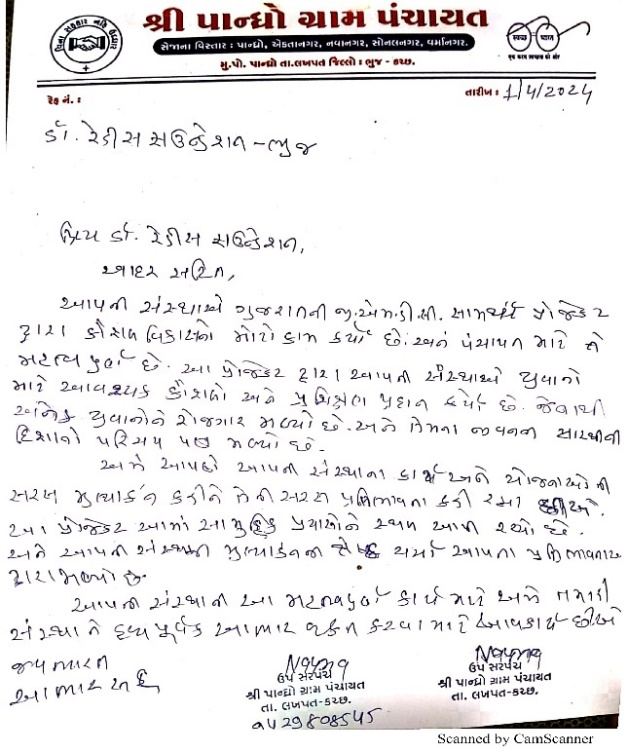 શ્રી પાન્ધ્રો ગ્રામ પંચાયત
સેજાના વિસ્તાર : પાન્ધ્રો, એકતાનગર, નવાનગર, સોનલનગર, વર્માનગર.
મુ.પો. પાન્ધ્રો તા.લખપત જિલ્લો : ભુજ - કચ્છ.
રેફ નં. :
તારીખ : 1/4/2024
ડૉ. રેડીસ ફાઉન્ડેશન - ભુજ
પ્રિય ડૉ. રેડીસ ફાઉન્ડેશન,
આદર સહિત,
આપની સંસ્થાએ ગુજરાતની જી.એમ.ડી.સી. પ્રોજેક્ટ
દ્વારા કૌશલ વિકાસનો મોટો કામ કર્યો છે. અને પંચાયત માટે તે
મહત્વ પૂર્ણ છે. આ પ્રોજેક્ટ દ્વારા આપની સંસ્થાએ યુવાનો
માટે આવશ્યક કૌશલો અને પ્રશિક્ષણ પ્રદાન કર્યો છે. જેનાથી
અનેક યુવાનોને રોજગાર મળ્યો છે. અને તેમના જીવનને સારથીની
દિશાનો પરિચય પણ મળ્યો છે.
અમે આપની સંસ્થાના કાર્ય અને યોજનાઓની
કરીને તેની કરી રહ્યા છીએ.
આ પ્રોજેક્ટ પ્રયાસોને આપી રહ્યો છે.
અને આપની સંસ્થાની
દ્વારા મળ્યો છે.
આપની સંસ્થાની આ મહત્વપૂર્ણ કાર્ય માટે અમે તમારી
સંસ્થાને આભાર કરવા માટે છીએ
જય ભારત
આભાર સહ
ઉપ સરપંચ
શ્રી પાન્ધ્રો ગ્રામ પંચાયત
તા. લખપત-કચ્છ.
9429808545
ઉપ સરપંચ
શ્રી પાન્ધ્રો ગ્રામ પંચાયત
તા. લખપત-કચ્છ.
Scanned by CamScanner